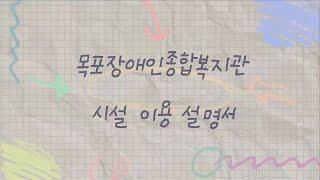 목포장애인종합복지관
시설 이용 설명서